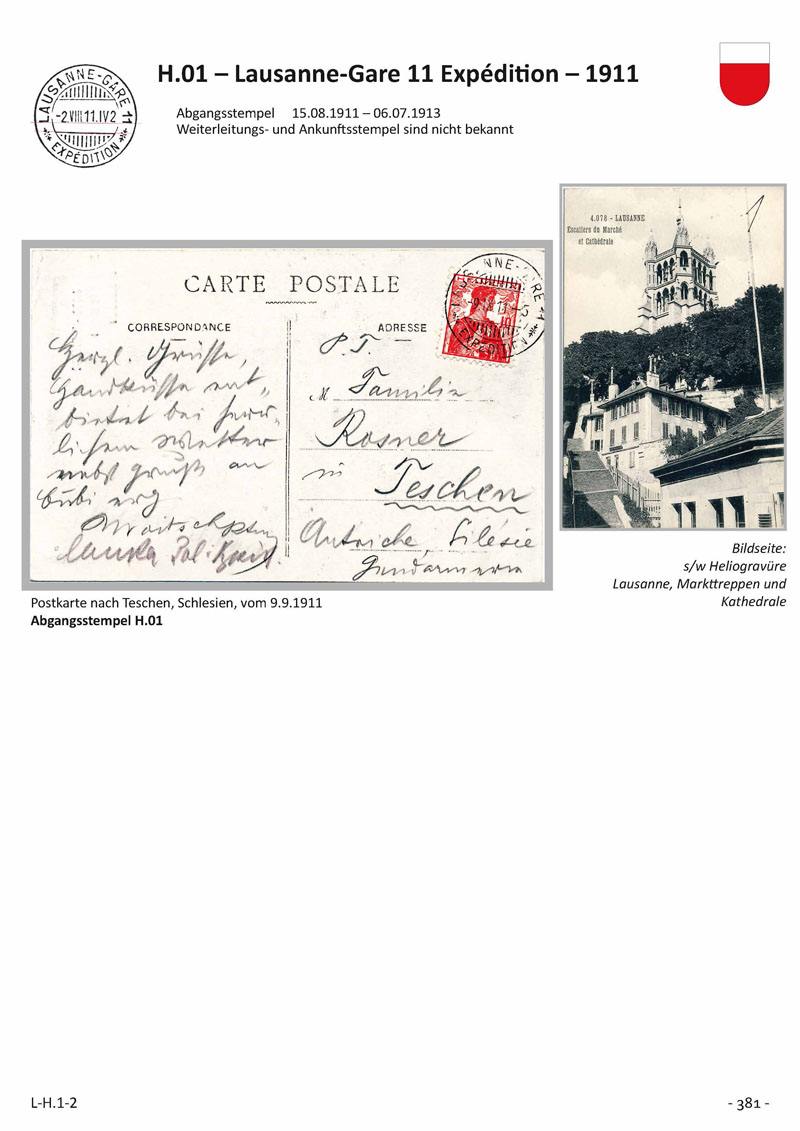 H.01 – Lausanne-Gare 11 Expédition – 1911
LAUSANNE-GARE 11
-2.VIII 11.IV2
EXPÉDITION
Abgangsstempel 15.08.1911 – 06.07.1913
Weiterleitungs- und Ankunftsstempel sind nicht bekannt
4.078 - LAUSANNE
Escaliers du Marché
et Cathédrale
NNE-GARE 11
EXPÉDITION
CARTE POSTALE
CORRESPONDANCE
ADRESSE
Herzl. Grüsse,
Handküsse ent-
bietet bei herr-
lichem Wetter
nebst Gruß an
Bubi
P.T.
M Familie
Rosner
in
Teschen
Autriche, Silésie
Gendarmerie
Postkarte nach Teschen, Schlesien, vom 9.9.1911
Abgangsstempel H.01
Bildseite:
s/w Heliogravüre
Lausanne, Markttreppen und
Kathedrale
L-H.1-2
- 381 -